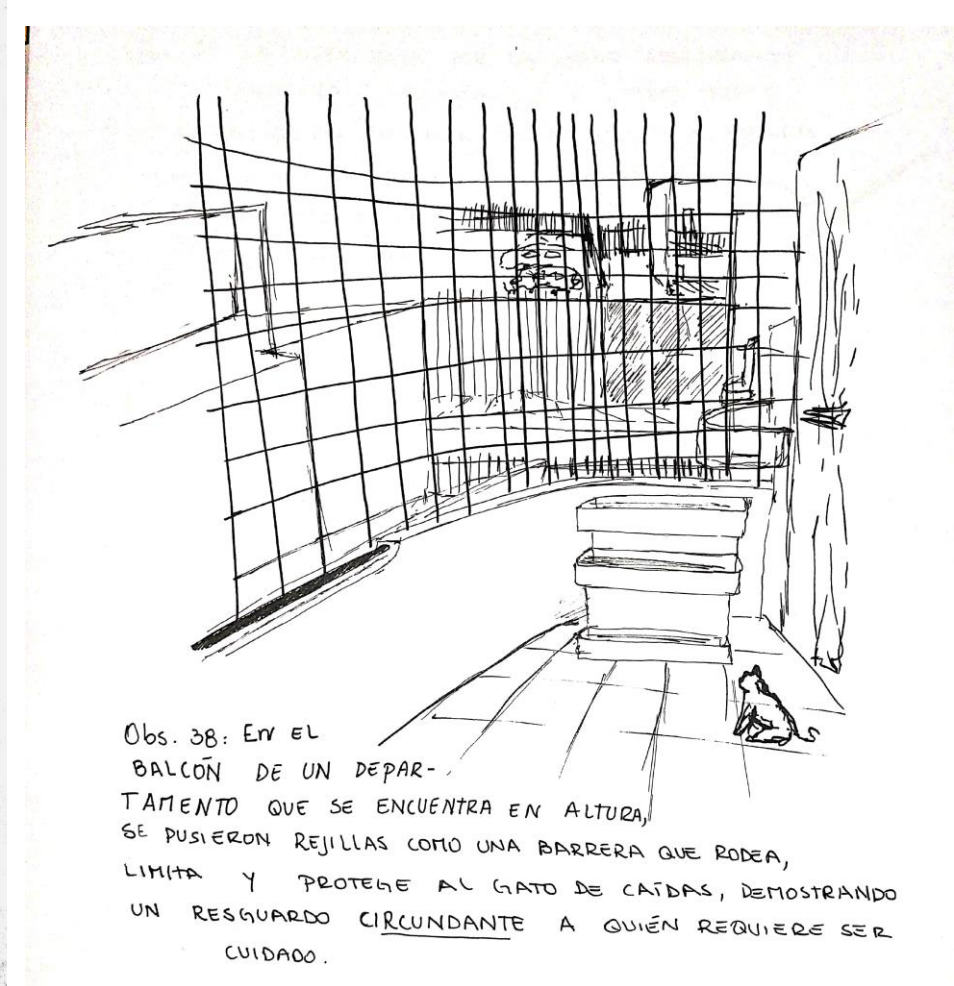 Obs. 38: EN EL
BALCÓN DE UN DEPAR-
TAMENTO QUE SE ENCUENTRA EN ALTURA,
SE PUSIERON REJILLAS COMO UNA BARRERA QUE RODEA,
LIMITA Y PROTEGE AL GATO DE CAÍDAS, DEMOSTRANDO
UN RESGUARDO CIRCUNDANTE A QUIÉN REQUIERE SER
CUIDADO.